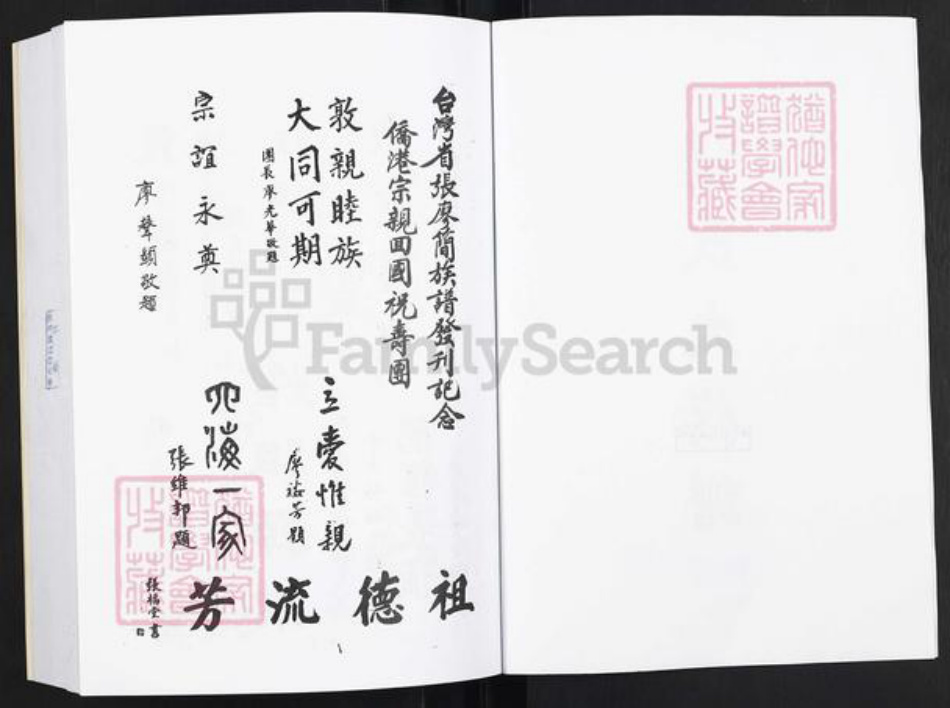 台灣省張廖簡族譜發刊記念
僑港宗親回國祝壽團
敦親睦族
大同可期
團長廖光華敬題
宗誼永奠
廖聲顗敬題
立愛惟親
廖芳題
四海一家
張維邦題
祖德流芳
張福堂書
猶他家
譜學會
收藏
猶他家
譜學會
收藏
FamilySearch